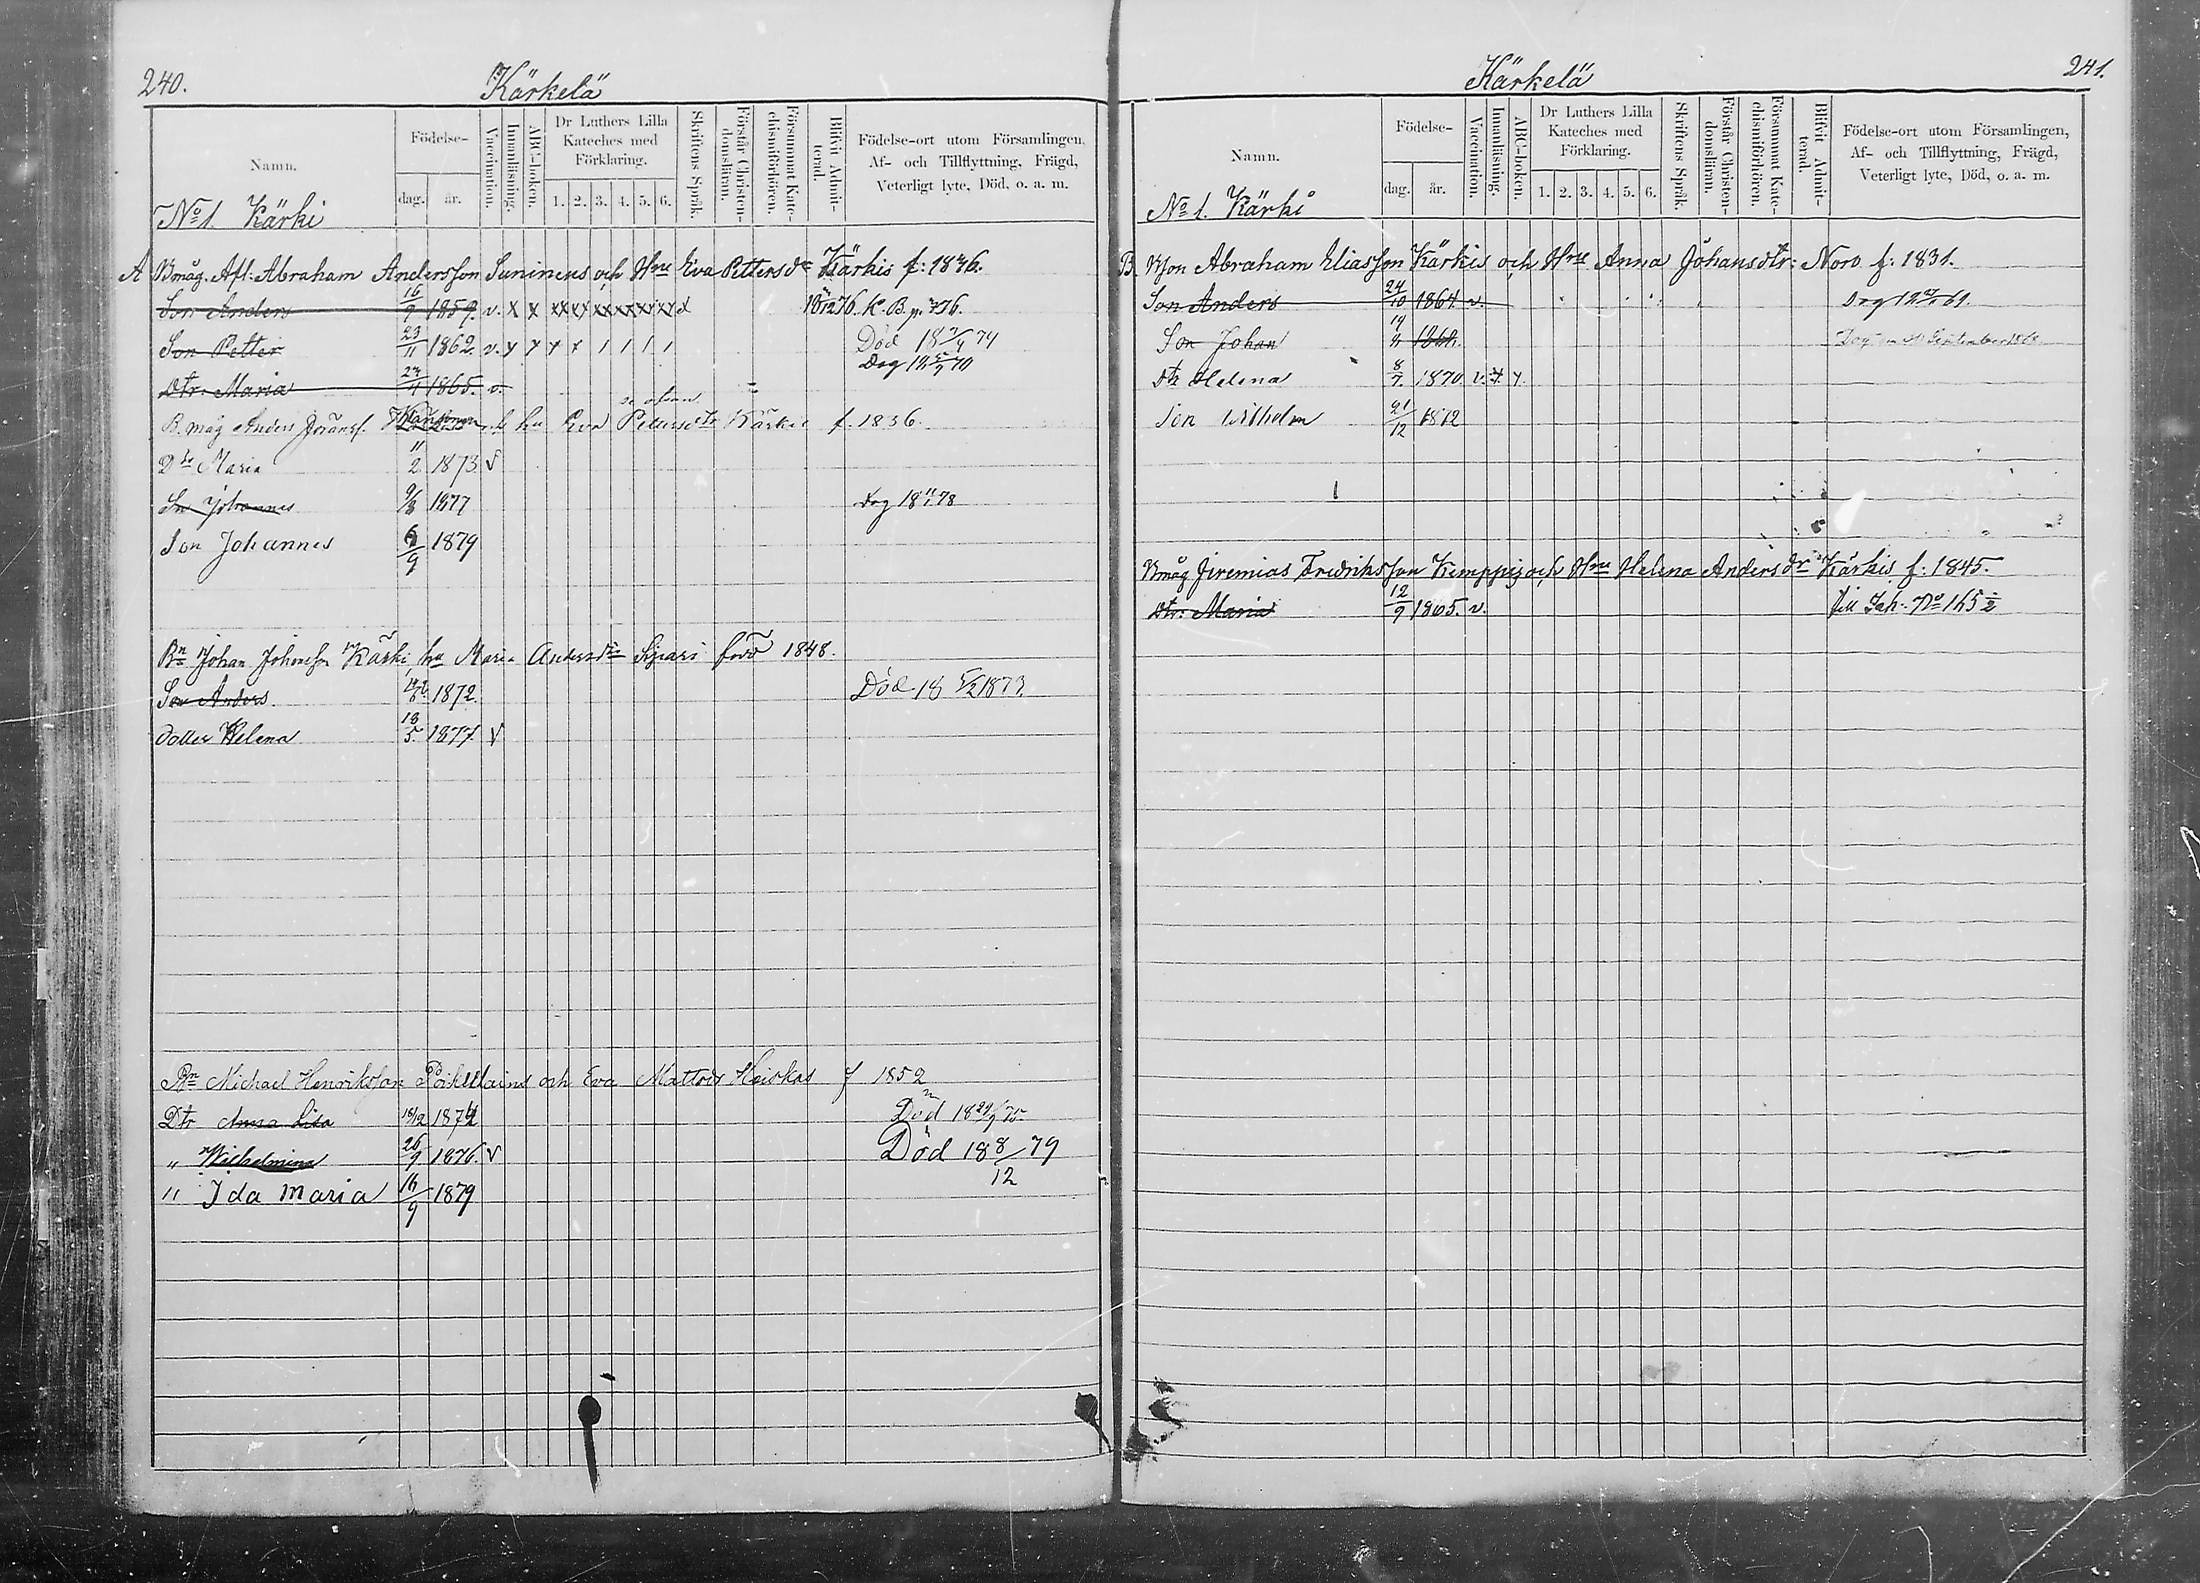 240.
Kärkelä
Namn.
Födelse-
dag. år.
Vaccination.
Innanläsning.
ABC-boken.
Dr Luthers Lilla Kateches med Förklaring.
1. 2. 3. 4. 5. 6.
Skriftens Språk.
Förstår Christendomsläran.
Försummat Katechismiförhören.
Blifvit Admitterad.
Födelse-ort utom Församlingen, Af- och Tillflyttning, Frägd, Veterligt lyte, Död, o. a. m.
No 1. Kärki
A Bmåg. Afl. Abraham Andersson Suninens och Hru Eva Pettersdr Kärkis f: 1836.
Son Anders 16/9 1859. v. x x xx xx xx xx xx xx d K. B. p. 436.
Son Petter 23/11 1862. v. x x x x / / / / Död 18 7/4 79
Dtr. Maria 1865. v.
B. måg Anders Göransf. hu Eva Petersdtr Kärki f. 1836.
Dtr Maria 11/2 1873 v
Sn Johannes 9/8 1877 Dog 18 11/1 78
Son Johannes 6/9 1879
Bn Johan Johansson Kärki hu Maria Andersdtr Sipari född 1848.
Son Anders. 1872. Död 18 5/2 1873
Dotter Helena 18/5 1877 v
Bn Michael Henriksson och Eva Mattsdr Heiskas f 1852
Dtr Anna Lisa 18/12 1874 Död 18 29/9 75
" Wilhelmina 26/9 1876. v Död 18 8/12 79
" Ida Maria 16/9 1879
241.
Kärkelä
Namn.
Födelse-
dag. år.
Vaccination.
Innanläsning.
ABC-boken.
Dr Luthers Lilla Kateches med Förklaring.
1. 2. 3. 4. 5. 6.
Skriftens Språk.
Förstår Christendomsläran.
Försummat Katechismiförhören.
Blifvit Admitterad.
Födelse-ort utom Församlingen, Af- och Tillflyttning, Frägd, Veterligt lyte, Död, o. a. m.
No 1. Kärki
B. Abraham Eliasson Kärkis och Hru Anna Johansdtr: Noro f: 1831.
Son Anders 24/10 1864. v.
Son Johan 1868.
Dtr Helena 8/7. 1870. v. x x
Son Wilhelm 21/12 1872
Bmåg Jeremias Fredriksson Kemppis och Hru Helena Andersdr Kärkis f: 1845.
Dtr. Maria 12/9 1865. v. till No 165 1/2